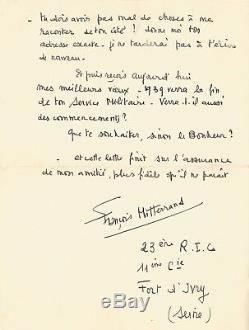 - tu dois avoir pas mal de choses à me
raconter sur ton été ! donne moi ton
adresse exacte. je ne tarderai pas à t'écrire
de nouveau.
Et puis reçois aujourd'hui
mes meilleurs vœux. 1939 verra la fin
de ton Service Militaire. Verra-t-il aussi
des commencements ?
Que te souhaiter, sinon le Bonheur ?
- et cette lettre finit sur l'assurance
de mon amitié, plus fidèle qu'il ne paraît
François Mitterrand
23ème R.I.C
11ème Cie
Fort d'Ivry
(Seine)